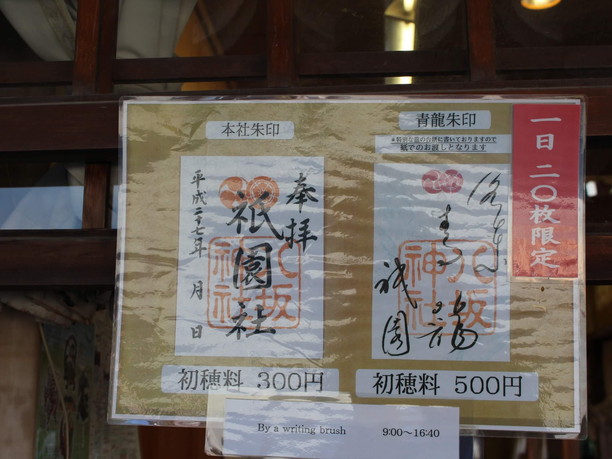 本社朱印
奉拝
祇園社
八坂神社
平成二十七年 月 日
初穂料 300円
青龍朱印
紙でのお渡しとなります
青龍
祇園
八坂神社
初穂料 500円
一日二〇枚限定
By a writing brush 9:00〜16:40